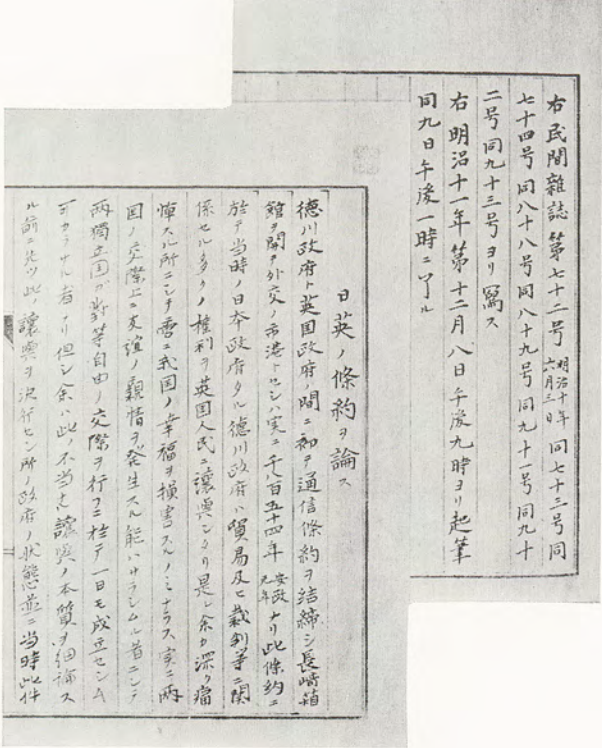 右民間雜誌第七十二号明治十年六月三日同七十三号同
七十四号同八十八号同八十九号同九十一号同九十
二号同九十三号ヨリ寫ス
右明治十一年第十二月八日午後九時ヨリ起筆
同九日午後一時ニ了ル
日英ノ條約ヲ論ス
德川政府ト英国政府ノ間ニ初テ通信條約ヲ結締シ長崎箱
館ヲ開テ外交ノ市港トセシハ実ニ千八百五十四年安政元年ナリ此條約ニ
於テ当時ノ日本政府タル德川政府ハ貿易及ヒ裁判等ニ関
係セル多クノ権利ヲ英国人民ニ讓與シタリ是レ余カ深ク痛
悼スル所ニシテ啻ニ我国ノ幸福ヲ損害スルノミナラス実ニ両
国ノ交際上ニ友誼ノ親情ヲ発生スル能ハサラシムル者ニシテ
両獨立国カ對等自由ノ交際ヲ行フニ於テ一日モ成立セシム
ヘカラサル者ナリ但シ余ハ此ノ不当ナル讓與ノ本質ヲ細論ス
ル前ニ先ツ此ノ讓與ヲ決行セシ所ノ政府ノ状態並ニ当時此件